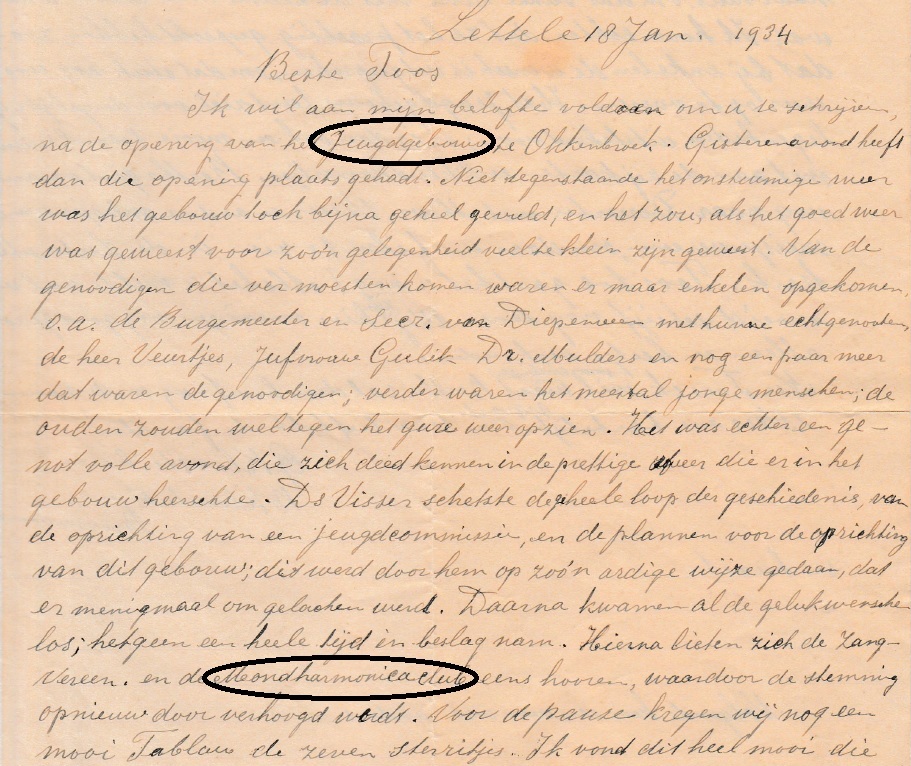 Lettele 18 Jan. 1934
Beste Toos
Ik wil aan mijn belofte voldoen om u te schrijven,
na de opening van het Jeugdgebouw te Okkenbroek. Gisterenavond heeft
dan die opening plaats gehadt. Niet tegenstaande het onstuimige weer
was het gebouw toch bijna geheel gevuld, en het zou, als het goed weer
was geweest voor zoo'n gelegenheid veel te klein zijn geweest. Van de
genoodigen die ver moesten komen waren er maar enkelen opgekomen,
o.a. de Burgemeester en Secr. van Diepenveen met hunne echtgenooten,
de heer Veurtjes, Jufvrouw Gulik Dr. Mulders en nog een paar meer
dat waren de genoodigen; verder waren het meestal jonge menschen; de
ouden zouden wel tegen het gure weer opzien. Het was echter een ge-
not volle avond, die zich deed kennen in de prettige sfeer die er in het
gebouw heerschte. Ds Visser schetste de geheele loop der geschiedenis, van
de oprichting van een jeugdcommissie, en de plannen voor de oprichting
van dit gebouw; dit werd door hem op zoo'n ardige wijze gedaan, dat
er menigmaal om gelachen werd. Daarna kwamen al de gelukwenschen
los; hetgeen een heele tijd in beslag nam. Hierna lieten zich de Zang-
Vereen. en de Mondharmonica club eens hooren, waardoor de stemming
opnieuw door verhoogd wordt. Voor de pauze kregen wij nog een
mooi Tablau de zeven sterritjes. Ik vond dit heel mooi die